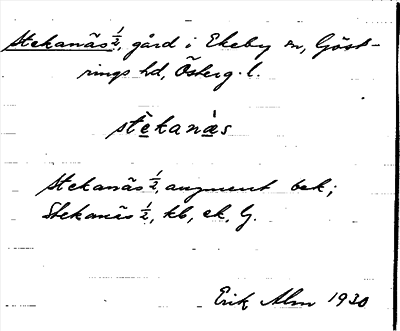 Stekanäs ½, gård i Ekeby sn, Göst-
rings hd, Österg. l.
stèkanàs
Stekanäs ½, augment bek;
Stekanäs ½, kb, ek, G.
Erik Alm 1930